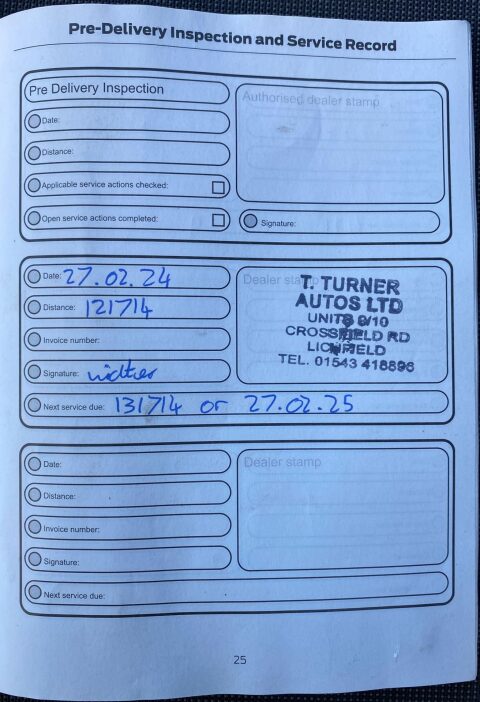 Pre-Delivery Inspection and Service Record
Pre Delivery Inspection
Authorised dealer stamp
Date:
Distance:
Applicable service actions checked:
Open service actions completed:
Signature:
Date: 27.02.24
Dealer stamp
T. TURNER
AUTOS LTD
UNITS 9/10
CROSSFIELD RD
LICHFIELD
TEL. 01543 418896
Distance: 121714
Invoice number:
Signature:
Next service due: 131714 or 27.02.25
Date:
Dealer stamp
Distance:
Invoice number:
Signature:
Next service due:
25